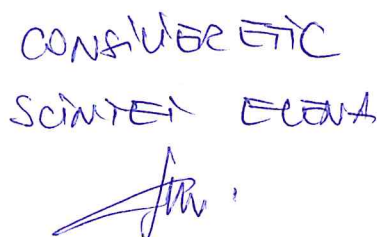 CONSILIER ETIC
SCINTEI ELENA